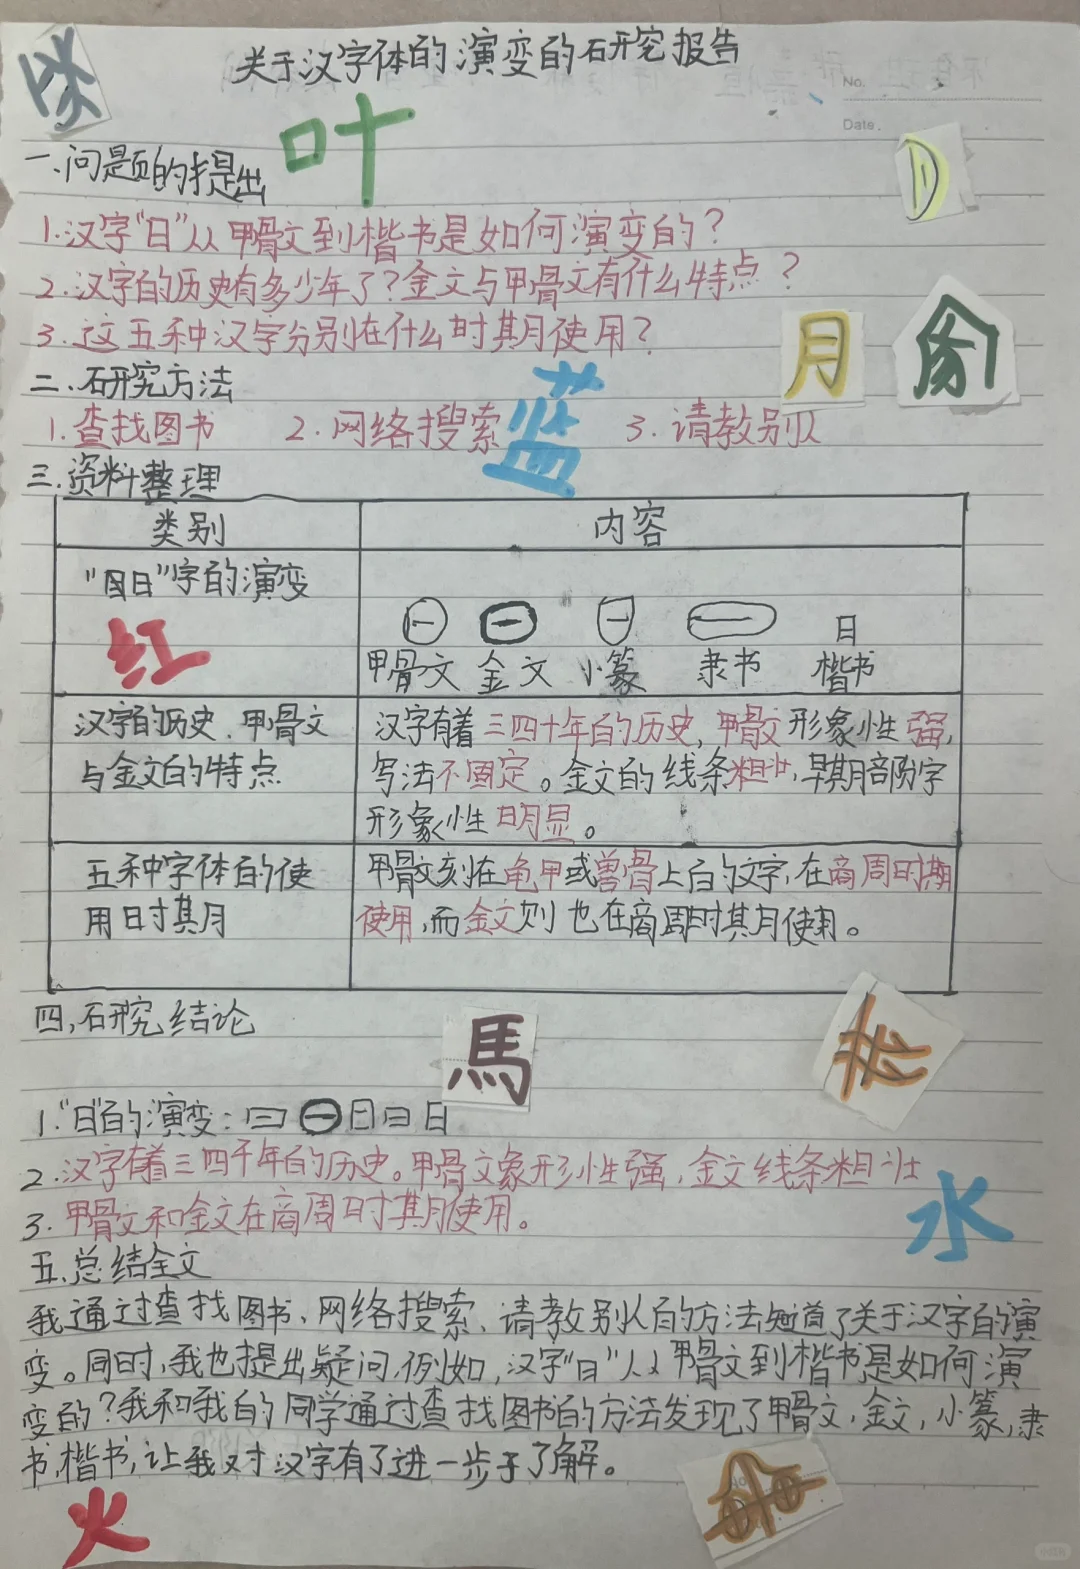 关于汉字体的演变的研究报告
No.
Date.
叶
一.问题的提出
1.汉字"日"从甲骨文到楷书是如何演变的？
2.汉字的历史有多少年了？金文与甲骨文有什么特点？
3.这五种汉字分别在什么时期使用？
月
二.研究方法
1.查找图书 2.网络搜索 3.请教别人
蓝
三.资料整理
类别 内容
"日"字的演变
红
甲骨文 金文 小篆 隶书 楷书
日
汉字的历史、甲骨文
与金文的特点
汉字有着三四十年的历史,甲骨文形象性强,
写法不固定。金文的线条粗壮,早期部分字
形象性明显。
五种字体的使
用日时期
甲骨文刻在龟甲或兽骨上白的文字,在商周时期
使用,而金文则也在商周时期使用。
四,研究结论
馬
1."日"的演变:
2.汉字有着三四千年的历史。甲骨文象形性强,金文线条粗壮
3.甲骨文和金文在商周时期使用。
水
五.总结全文
我通过查找图书、网络搜索、请教别人的方法知道了关于汉字的演
变。同时,我也提出疑问,例如,汉字"日"从甲骨文到楷书是如何演
变的?我和我的同学通过查找图书的方法发现了甲骨文,金文,小篆,隶
书,楷书,让我对汉字有了进一步于了解。
火
小红书